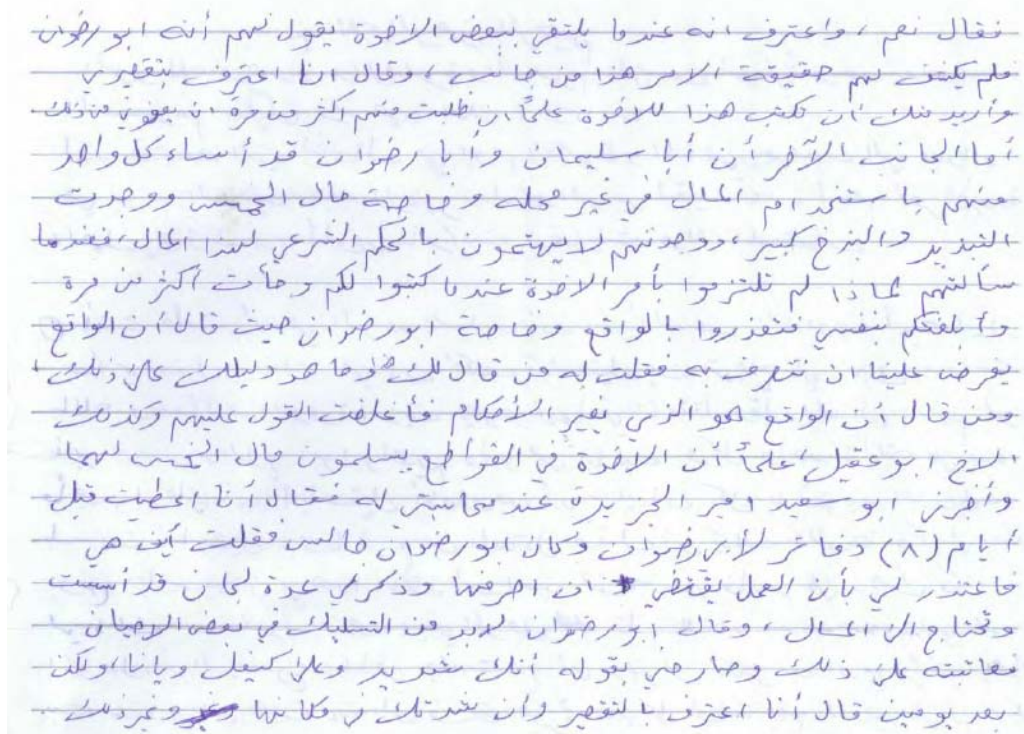 فقال نعم ، واعترف انه عندما يلتقي ببعض الاخوة يقول لهم أنه ابو رضوان
فلم يكشف لهم حقيقة الامر هذا من جانب ، وقال انا اعترف بتقصيري
وأريد منك أن تكتب هذا للاخوة علماً ان طلبت منهم اكثر من مرة ان يعفوني من ذلك
أما الجانب الآخر أن أبا سليمان وأبا رضوان قد أساء كل واحد
منهم باستخدام المال في غير محله وخاصة مال الخمس ووجدت
التبذير والبذخ كبير ، ووجدتهم لا يهتمون بالحكم الشرعي لهذا المال ، فعندما
سألتهم لماذا لم تلتزموا بأمر الاخوة عندما كتبوا لكم وجأت أكثر من مرة
وأبلغكم بنفسي فتعذروا بالواقع وخاصة ابو رضوان حيث قال أن الواقع
يفرض علينا ان نتصرف به فقلت له من قال لك هذا وما هو دليلك على ذلك
ومن قال أن الواقع هو الذي يغير الأحكام فأغلظت القول عليهم وكذلك
الاخ ابو عقيل علماً أن الاخوة في القواطع يسلمون مال الخمس لهما
وأخبرني ابو سعيد امير الجزيرة عند محاسبتي له فقال أنا اعطيت قبل
أيام (٨) دفاتر لأبي رضوان وكان ابو رضوان جالس فقلت أين هي
فاعتذر لي بأن العمل يقتضي ان اصرفها وذكر لي عدة لجان قد أسست
وتحتاج الى المال ، وقال ابو رضوان لابد من التسليك في بعض الاحيان
فعاتبته على ذلك وصارحني بقوله أنك شديد وعلى كيفك ويانا ، ولكن
بعد يومين قال أنا اعترف بالتقصير وأن شدتك في مكانها وغير ذلك